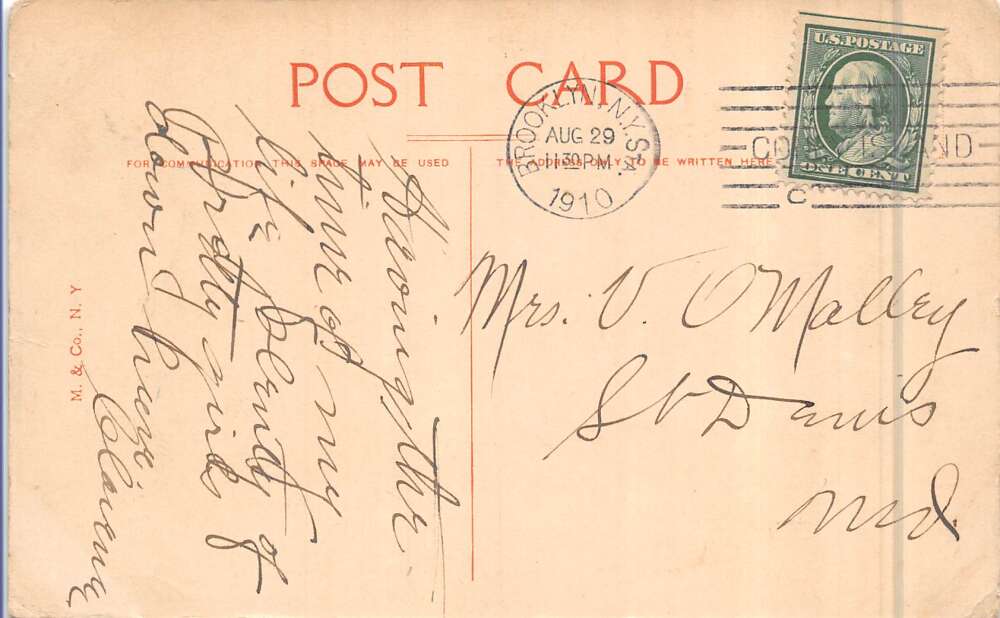 POST CARD
FOR COMMUNICATION THIS SPACE MAY BE USED
THE ADDRESS ONLY TO BE WRITTEN HERE
BROOKLYN, N.Y. STA.
AUG 29
11 30 PM
1910
CONEY ISLAND
C
U.S. POSTAGE
ONE CENT
M. & Co., N. Y
Having the
time of my
life plenty of
Pretty girls
down here
Clarence
Mrs. V. O'Malley
St Denis
Md.